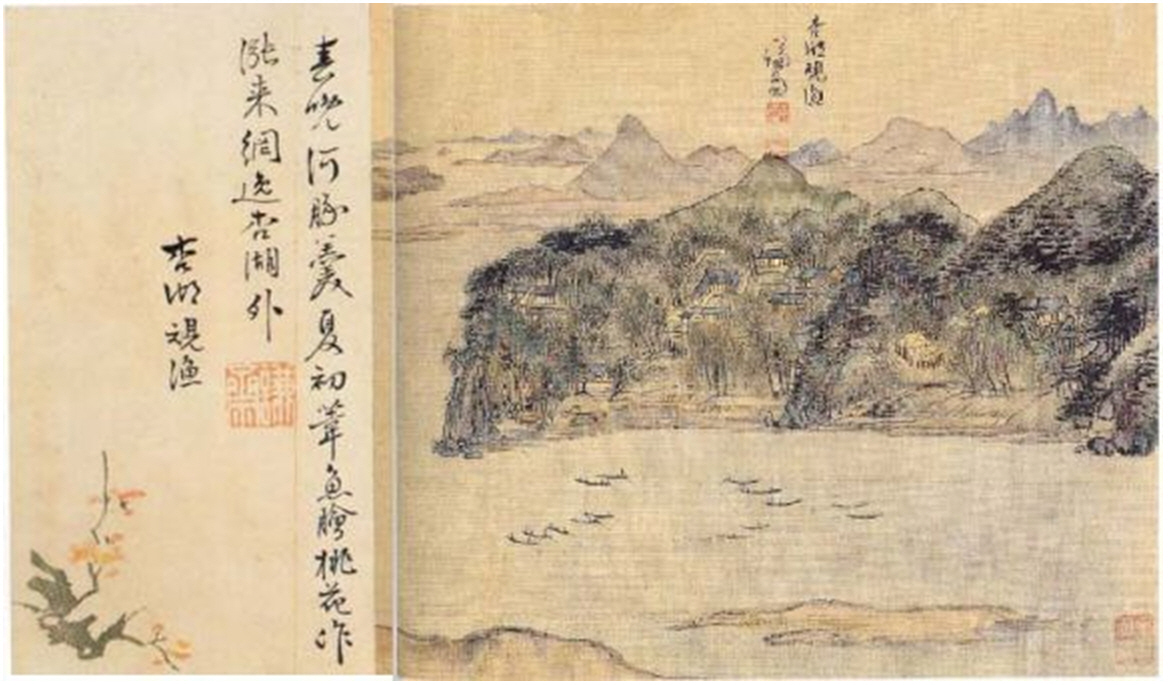 杏湖觀漁
謙齋
春晩河豚羹夏初葦魚膾桃花作
漲来網逸杏湖外
杏湖觀漁